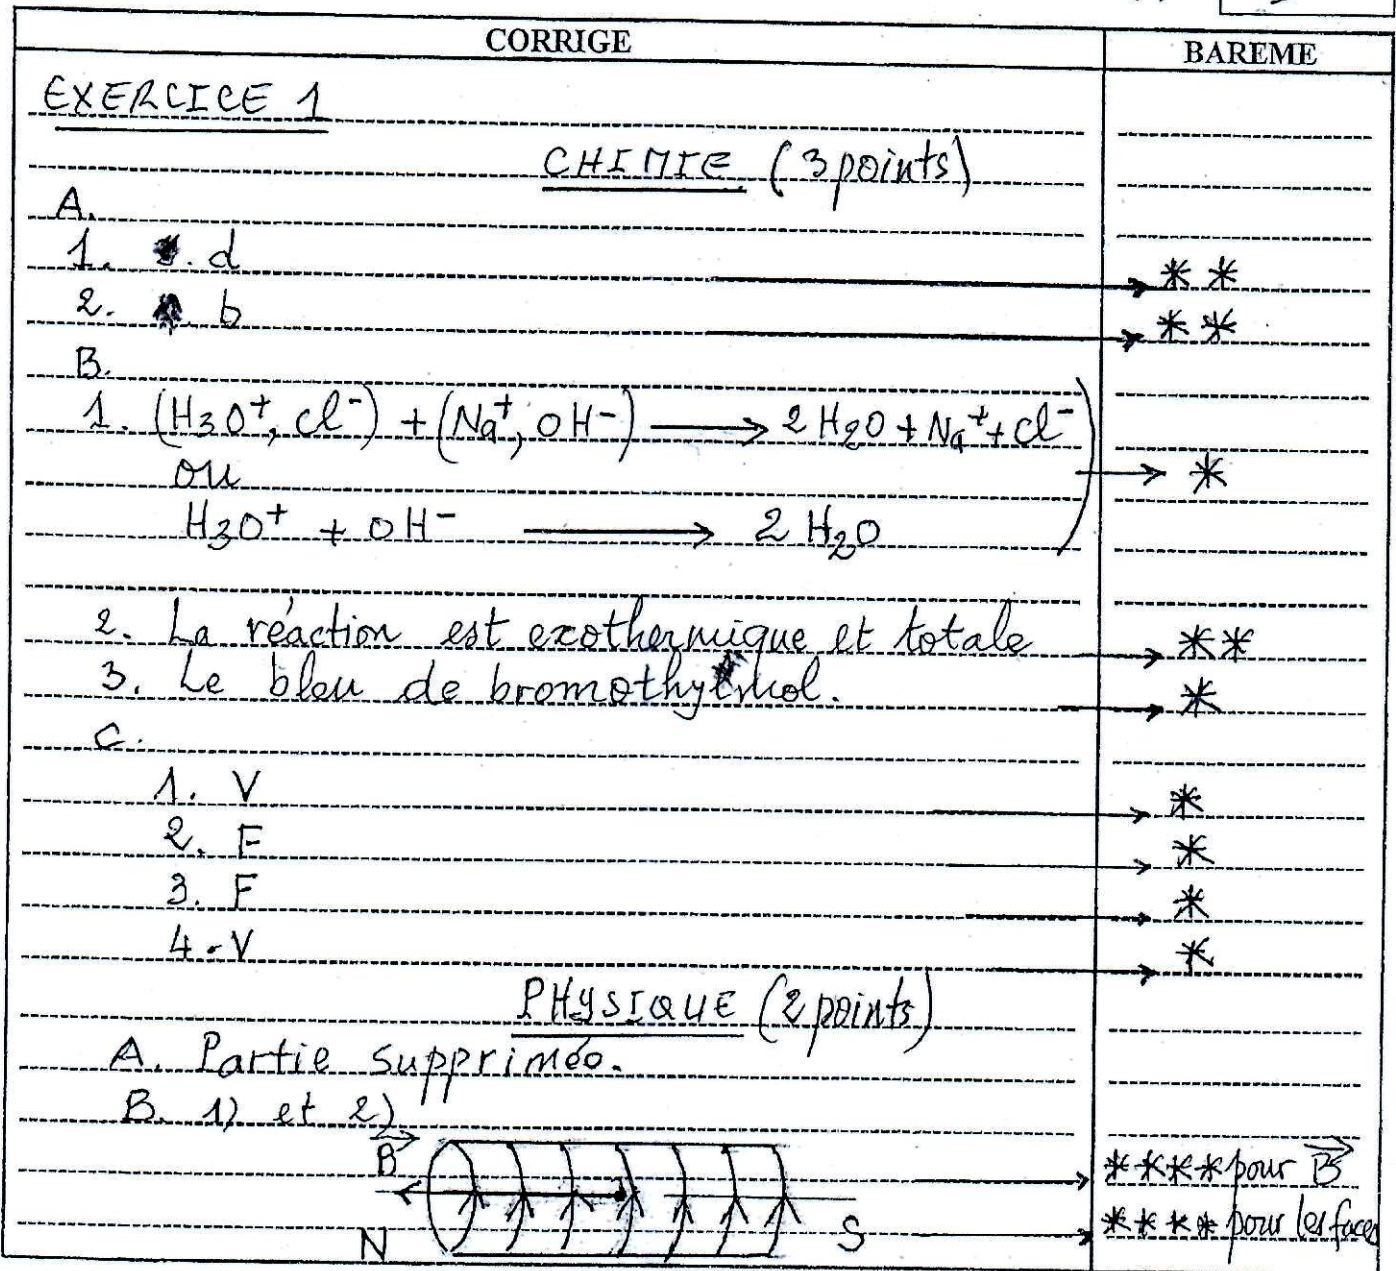 CORRIGE BAREME
EXERCICE 1
CHIMIE (3 points)
A.
1. . d → * *
2. . b → * *
B.
1. (H3O⁺, Cl⁻) + (Na⁺, OH⁻) → 2 H2O + Na⁺ + Cl⁻
ou → *
H3O⁺ + OH⁻ → 2 H2O
2. La réaction est exothermique et totale → **
3. Le bleu de bromothymol. → *
C.
1. V → *
2. F → *
3. F → *
4. V → *
PHYSIQUE (2 points)
A. Partie supprimée.
B. 1) et 2)
B⃗ → **** pour B⃗
N S → **** pour les faces